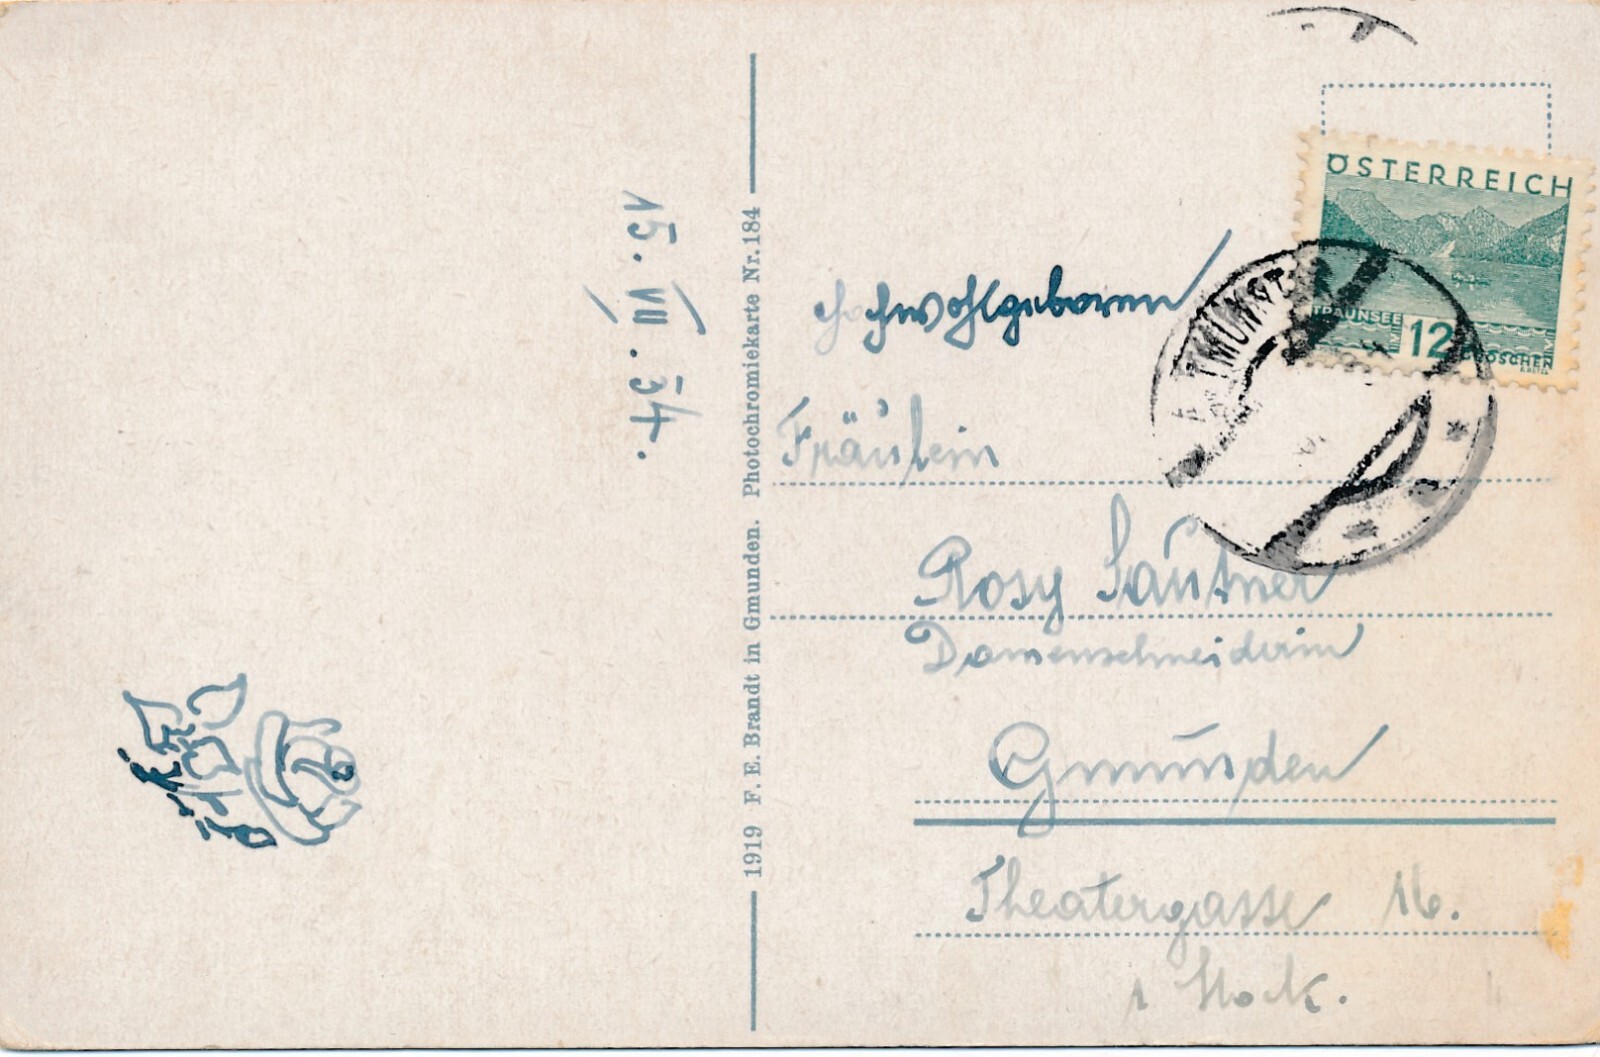 15. VII. 34.
1919 F. E. Brandt in Gmunden. Photochromiekarte Nr. 184
ÖSTERREICH
TRAUNSEE
12 GROSCHEN
Hochwohlgeboren
Fräulein
Rosy Sautner
Damenschneiderin
Gmunden
Theatergasse 16.
1 Stock.